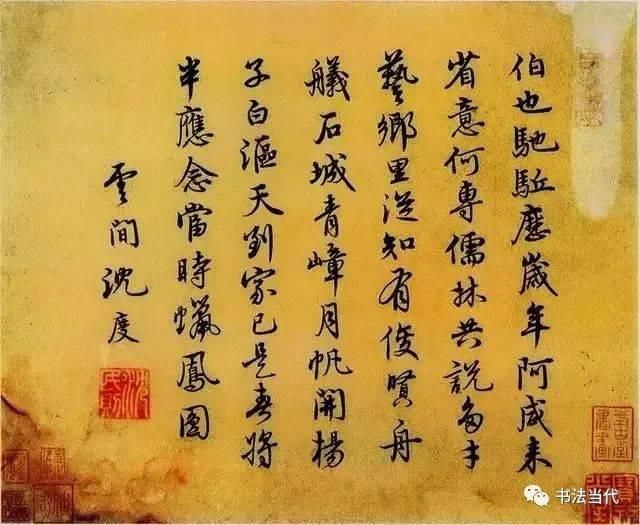 伯也馳駈歷歲年阿咸未
省意何專儒林共說多才
藝鄉里從知有俊賢舟
艤石城青嶂月帆開楊
子白漚天到家已是春將
半應念當時蠟鳳圓
雲間沈度
沈民則
书法当代